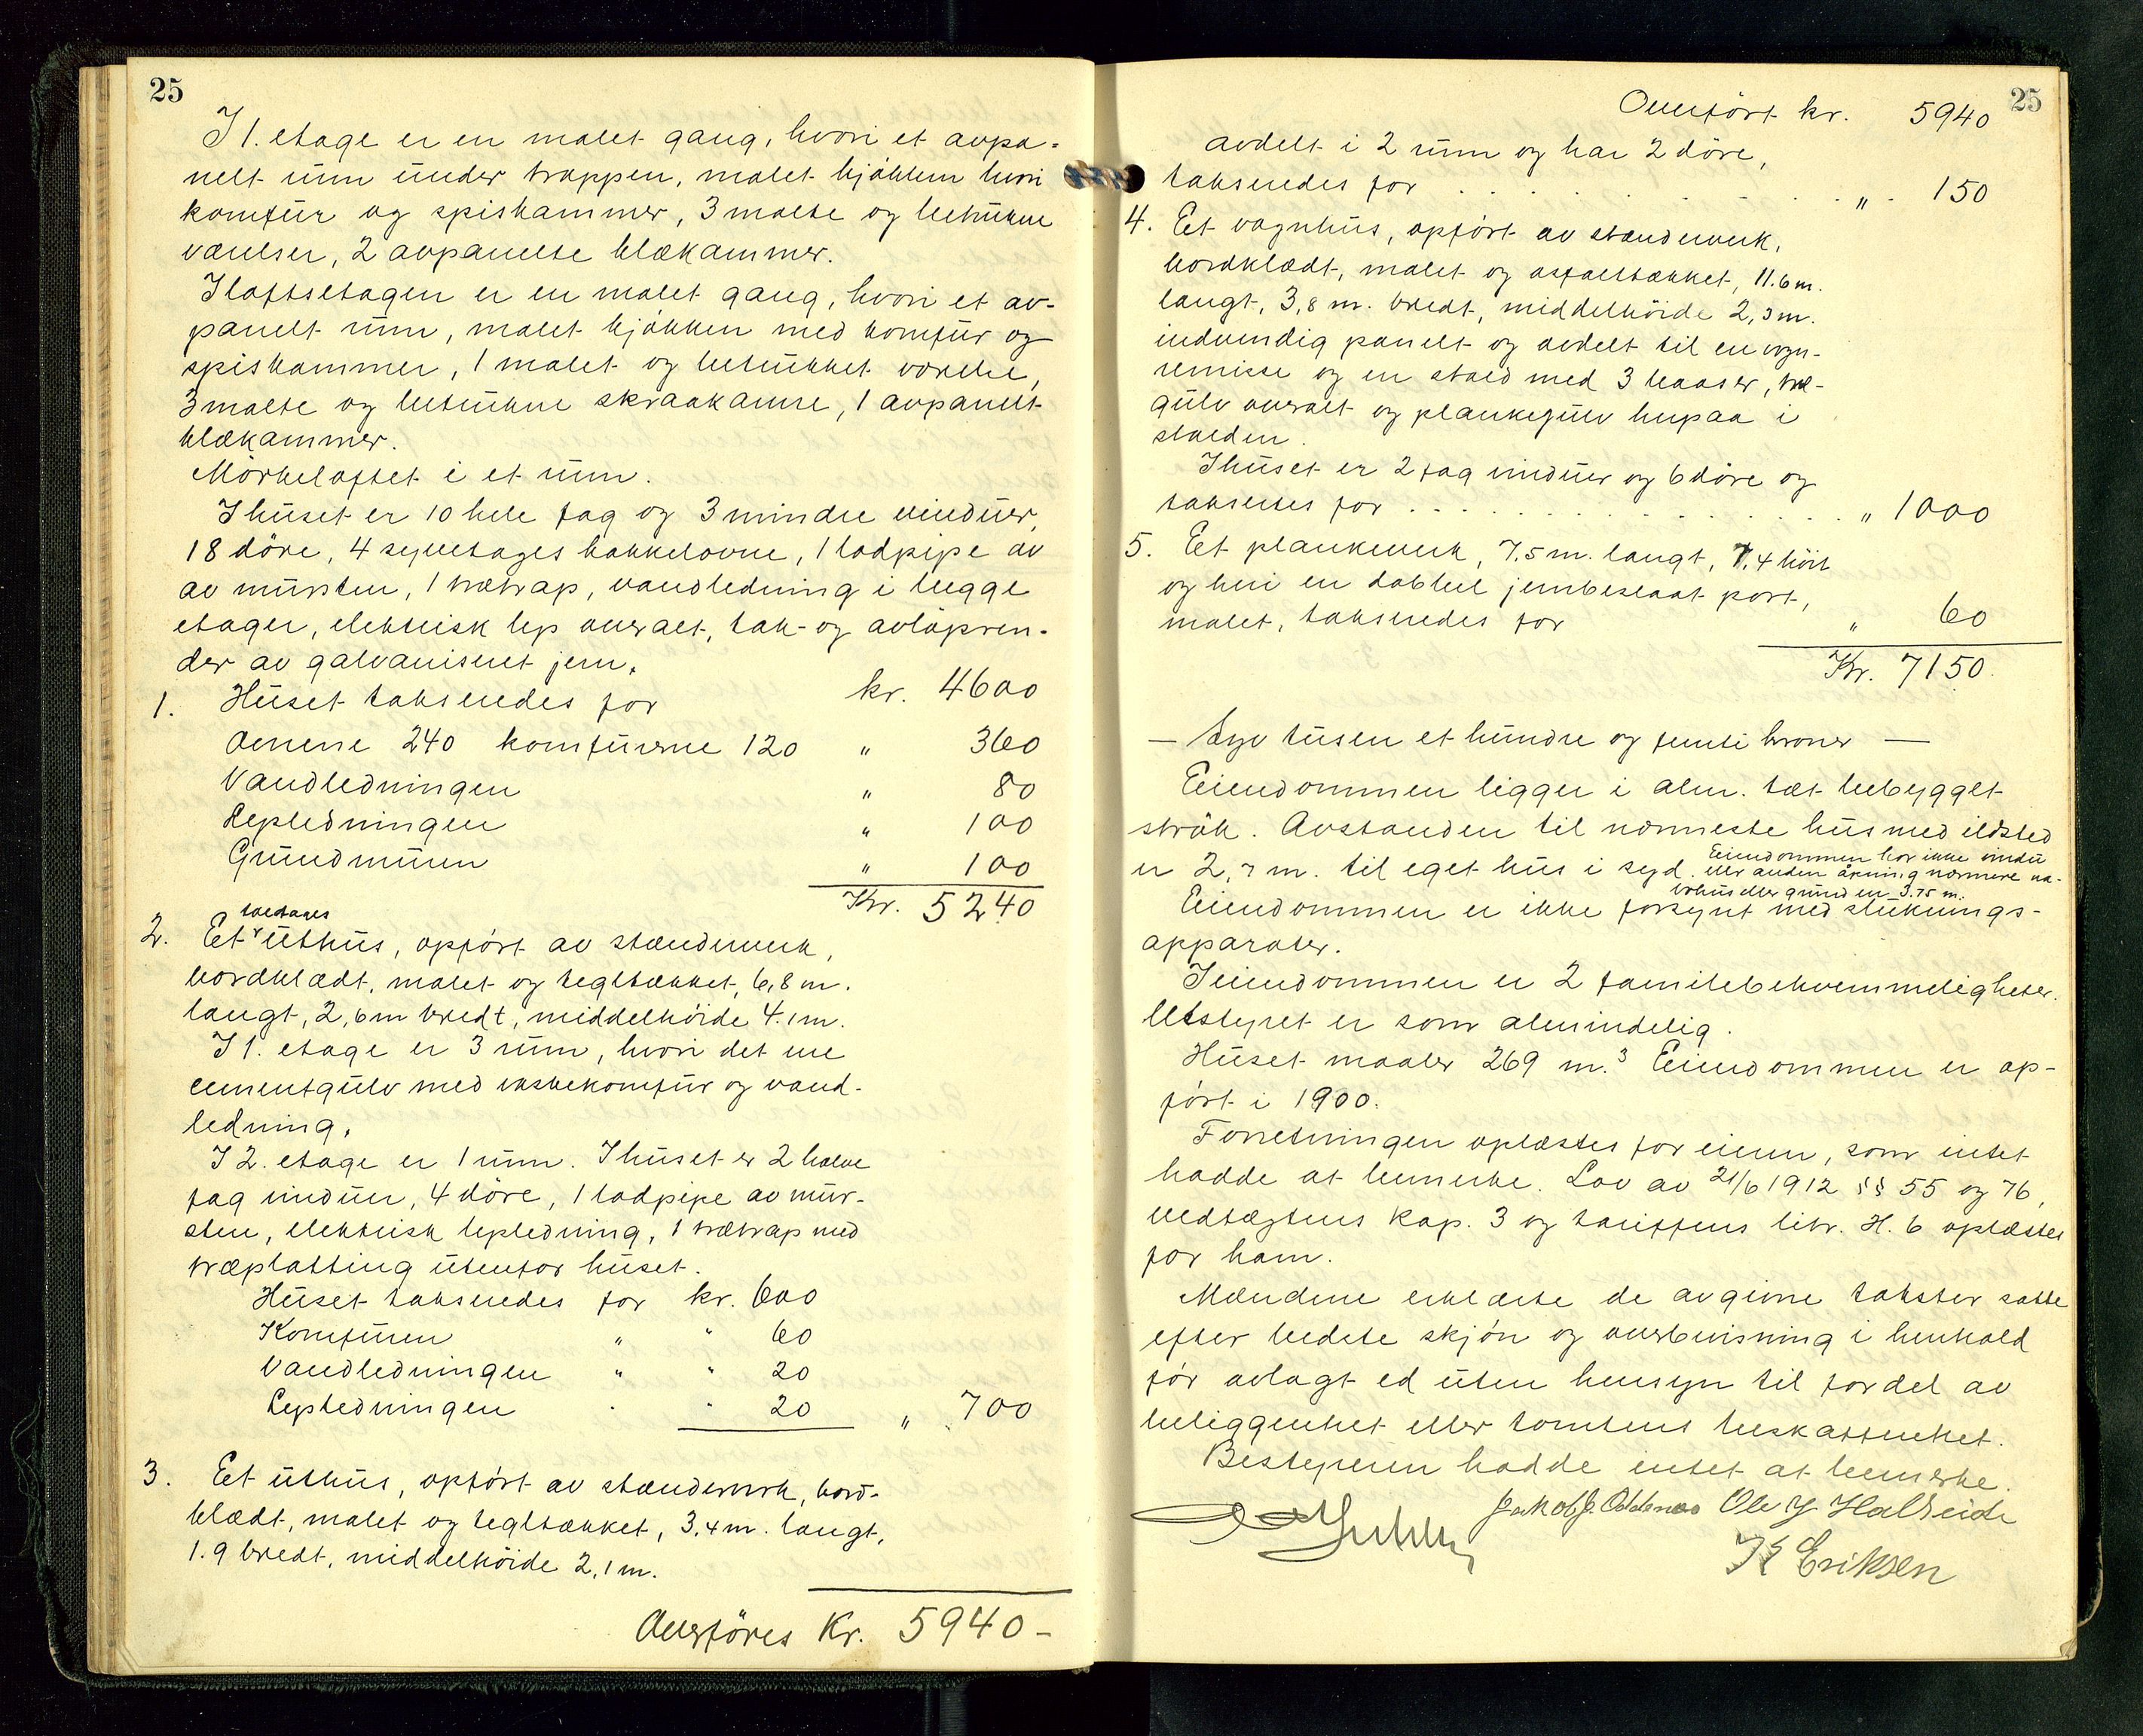 25
I 1. etage er en malet gang, hvori et avpa-
nelt rum under trappen, malet kjøkken hvori
komfur og spiskammer, 3 malte og betrukne
værelser, 2 avpanelte klækammer.
I loftsetagen er en malet gang, hvori et av-
panelt rum, malet kjøkken med komfur og
spiskammer, 1 malet og betrukket værelse,
3 malte og betrukne skraakamre, 1 avpanelt
klækammer.
Mørkeloftet i et rum.
I huset er 10 hele fag og 3 mindre vinduer,
18 døre, 4 syvetages kakkelovne, 1 lodpipe av
av mursten, 1 trætrap, vandledning i begge
etager, elektrisk lys overalt, tak- og avløpsren-
der av galvaniseret jern.
1. Huset takseredes for kr. 4600
Ovnene 240 komfurerne 120 " 360
Vandledningen " 80
Lysledningen " 100
Grundmuren " 100
Kr. 5240
toetages
2. Et uthus, opført av stænderverk,
bordklædt, malet og tegltækket, 6,8 m.
langt, 2,6 m bredt, middelhøide 4.1 m.
I 1. etage er 3 rum, hvori det ene
cementgulv med vaskekomfur og vand-
ledning.
I 2. etage er 1 rum. I huset er 2 halve
fag vinduer, 4 døre, 1 lodpipe av mur-
sten, elektrisk lysledning, 1 trætrap med
træplatting utenfor huset.
Huset takseredes for kr. 600
Komfuren " " 60
Vandledningen " " 20
Lysledningen " " 20 " 700
3. Et uthus, opført av stænderverk, bord-
klædt, malet og tegltækket, 3,4 m. langt,
1.9 bredt, middelhøide 2,1 m.
Overføres Kr. 5940 -
25
Overført kr. 5940
avdelt i 2 rum og har 2 døre,
takseredes for . . . . . . . " . 150
4. Et vognhus, opført av stænderverk,
bordklædt, malet og asfalttækket, 11.6 m.
langt, 3,8 m. bredt, middelhøide 2,3 m.
indvendig panelt og avdelt til en vogn-
remisse og en stald med 3 baaser, træ-
gulv overalt og plankegulv herpaa i
stalden.
I huset er 2 fag vinduer og 6 døre og
takseres for . . . . . . . . . " 1000
5. Et plankeverk, 7.5 m. langt, 1.4 høit
og heri en dobbel jernbeslaat port,
malet, takseredes for " 60
Kr. 7150.
— Syv tusen et hundre og femti kroner —
Eiendommen ligger i alm. tæt bebygget
strøk. Avstanden til nærmeste hus med ildsted
Eiendommen har ikke vindu
er 2,7 m. til eget hus i syd. eller anden åpning nærmere na-
bohus eller grund en 3.75 m.
Eiendommen er ikke forsynt med sluknings-
apparater.
I eiendommen er 2 familebekvemmeligheter.
Utstyret er som almindelig.
Huset maaler 269 m.³ Eiendommen er op-
ført i 1900.
Forretningen oplæstes for eieren, som intet
hadde at bemerke. Lov av 21/6 1912 §§ 55 og 76,
vedtægtens kap. 3 og tariffens litr. H. 6 oplæstes
for ham.
Mændene erklærte de avgivne takster satte
efter bedste skjøn og overbevisning i henhold
før avlagt ed uten hensyn til fordel av
beliggenhet eller tomtens beskaffenhet.
Bestyreren hadde intet at bemerke.
Jakob J. Oddenes Ole J Halseide
K Eriksen